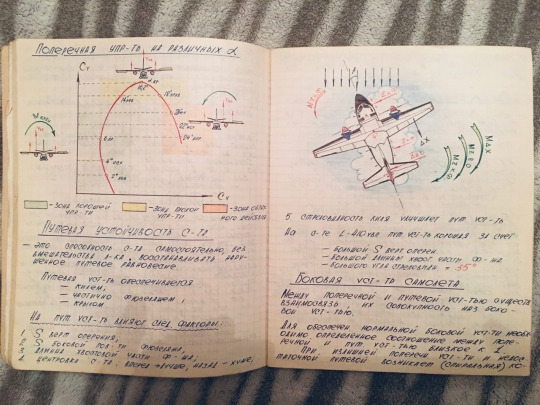 Поперечная упр-ть на различных α
Cy
Cx
- зона хорошей упр-ти
- зона плохой упр-ти
- зона обрат ного действия
Путевая устойчивость с-та
- это способность с-та самостоятельно, без
вмешательства л-ка, восстанавливать нару-
шенное путевое равновесие.
Путевая уст-ть обеспечивается
- килем,
- частично фюзеляжем,
На пут. уст-ть влияют след. факторы:
1. S верт. оперения,
2. S боковой пов-ти фюзеляжа,
3. длинна хвостовой части ф-жа,
4. центровка с-та: вперед - лучше, назад - хуже,
5. стреловидность киля улучшает пут. уст-ть
На с-те L-410УВП пут. уст-ть хорошая за счет
- большой S верт. оперен.
- большой длинны хвост. части ф-жа
- большого угла стреловидн. = 35°
Боковая уст-ть самолета
Между поперечной и путевой уст-тью существ.
взаимосвязь, их совокупность наз. боко-
вой уст-тью.
Для обеспечен. нормальной боковой уст-ти необх
одимо определенное соотношение между попе-
речной и пут. уст-тью близкое к 1.
При излишней поперечн. уст-ти и недос-
таточной путевой возникает (спиральная) ко-